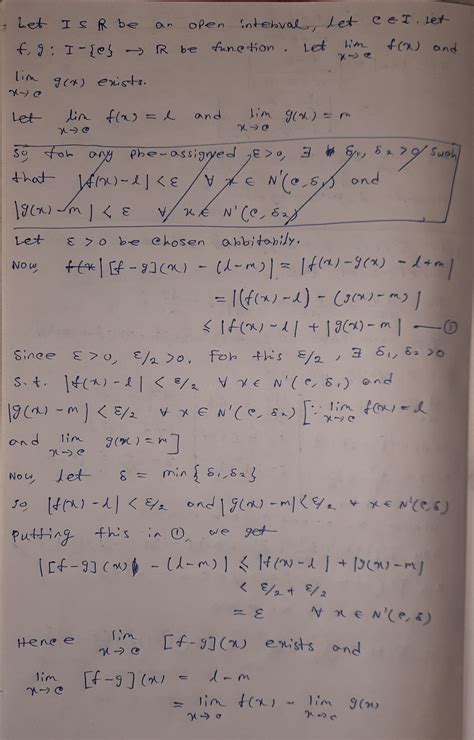 Let I ⊆ ℝ be an open interval, Let c ∈ I. Let
f, g : I-{c} → ℝ be function. Let lim_{x→c} f(x) and
lim_{x→c} g(x) exists.
Let lim_{x→c} f(x) = l and lim_{x→c} g(x) = m
So for any pre-assigned ε>0, ∃ δ₁, δ₂ >0 such
that |f(x)-l| < ε ∀ x ∈ N'(c, δ₁) and
|g(x)-m| < ε ∀ x ∈ N'(c, δ₂)
Let ε > 0 be chosen arbitarily.
Now, |[f-g](x) - (l-m)| = |f(x)-g(x) - l+m|
= |(f(x)-l) - (g(x)-m)|
≤ |f(x)-l| + |g(x)-m| — ①
Since ε > 0, ε/2 >0. For this ε/2, ∃ δ₁, δ₂ >0
s.t. |f(x)-l| < ε/2 ∀ x ∈ N'(c, δ₁) and
|g(x)-m| < ε/2 ∀ x ∈ N'(c, δ₂) [∵ lim_{x→c} f(x) = l
and lim_{x→c} g(x) = m]
Now, Let δ = min{δ₁, δ₂}
So, |f(x)-l| < ε/2 and |g(x)-m| < ε/2 ∀ x ∈ N'(c, δ)
Putting this in ①, we get
|[f-g](x) - (l-m)| ≤ |f(x)-l| + |g(x)-m|
< ε/2 + ε/2
= ε ∀ x ∈ N'(c, δ)
Hence lim_{x→c} [f-g](x) exists and
lim_{x→c} [f-g](x) = l-m
= lim_{x→c} f(x) - lim_{x→c} g(x)